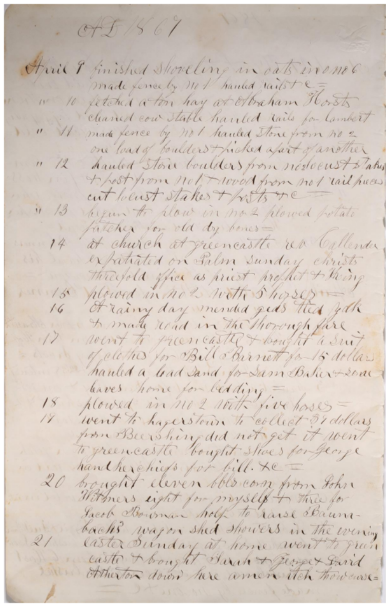 AD 1867
April 9 finished shoveling in oats in no 6
made fence by no 1 hauled rails & c =
" 10 fetched a ton hay at Abraham Horsts
cleaned cow stable hauled rails for lambert
" 11 made fence by no 1 hauled stone from no 2
one load of boulders & picked a part of another
" 12 hauled stone boulders from no locust stakes
& post from no 1 & wood from no 1 rail pieces
cut locust stakes & posts & c =
" 13 begun to plow in no 2 plowed potato
patches for old dy
14 at church at greencastle reb Callender
expatiated on Palm sunday christs
threefold office as priest prophet & King
15 plowed in no 2 with 5 horses =
16 A rainy day mended gears tied
& made road in the thoroughfare
17 went to greencastle & bought a suit
of clothes for Bill Burnett for 15 dollars
hauled a load sand for Sam Baker & some
leaves home for bedding =
18 plowed in no 2 with five horses =
19 went to hagerstown to collect 50 dollars
from Beershing did not get it went
to greencastle bought shoes for George
handkerchiefs for bill & c =
20 brought eleven bbls corn from John
Witmers eight for myself & three for
Jacob help to raise
backs wagon shed showers in the evening
21 Easter Sunday at home went to green
castle & bought Sarah & George & David
Atherton down here